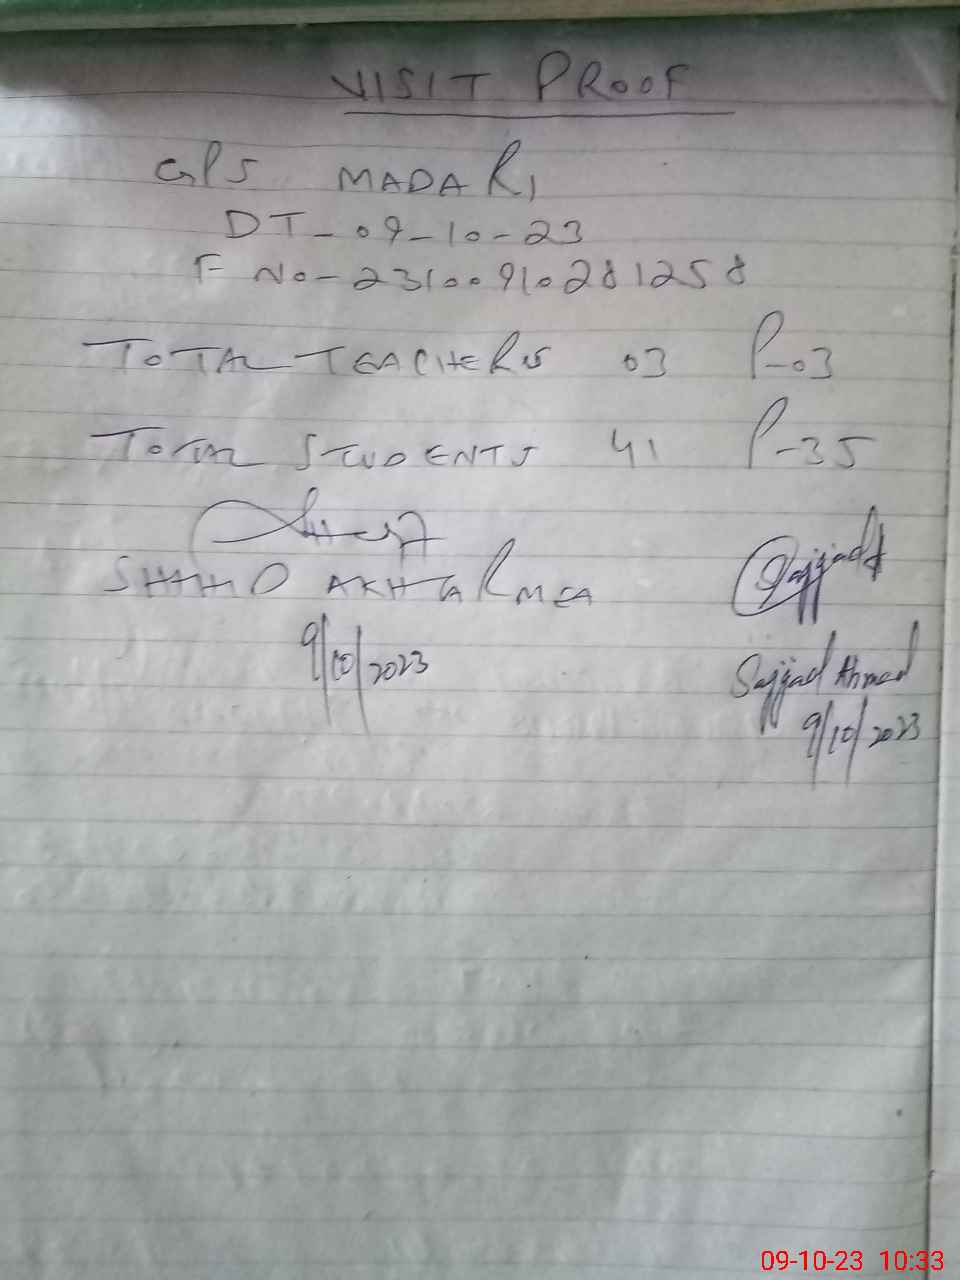 VISIT PROOF
GPS MADARI
DT-09-10-23
F NO-23100910281258
TOTAL TEACHERS 03 P-03
TOTAL STUDENTS 41 P-35
SHAHID AKHTAR MEA
9/10/2023
Sajjad
Sajjad Ahmed
9/10/2023
09-10-23 10:33